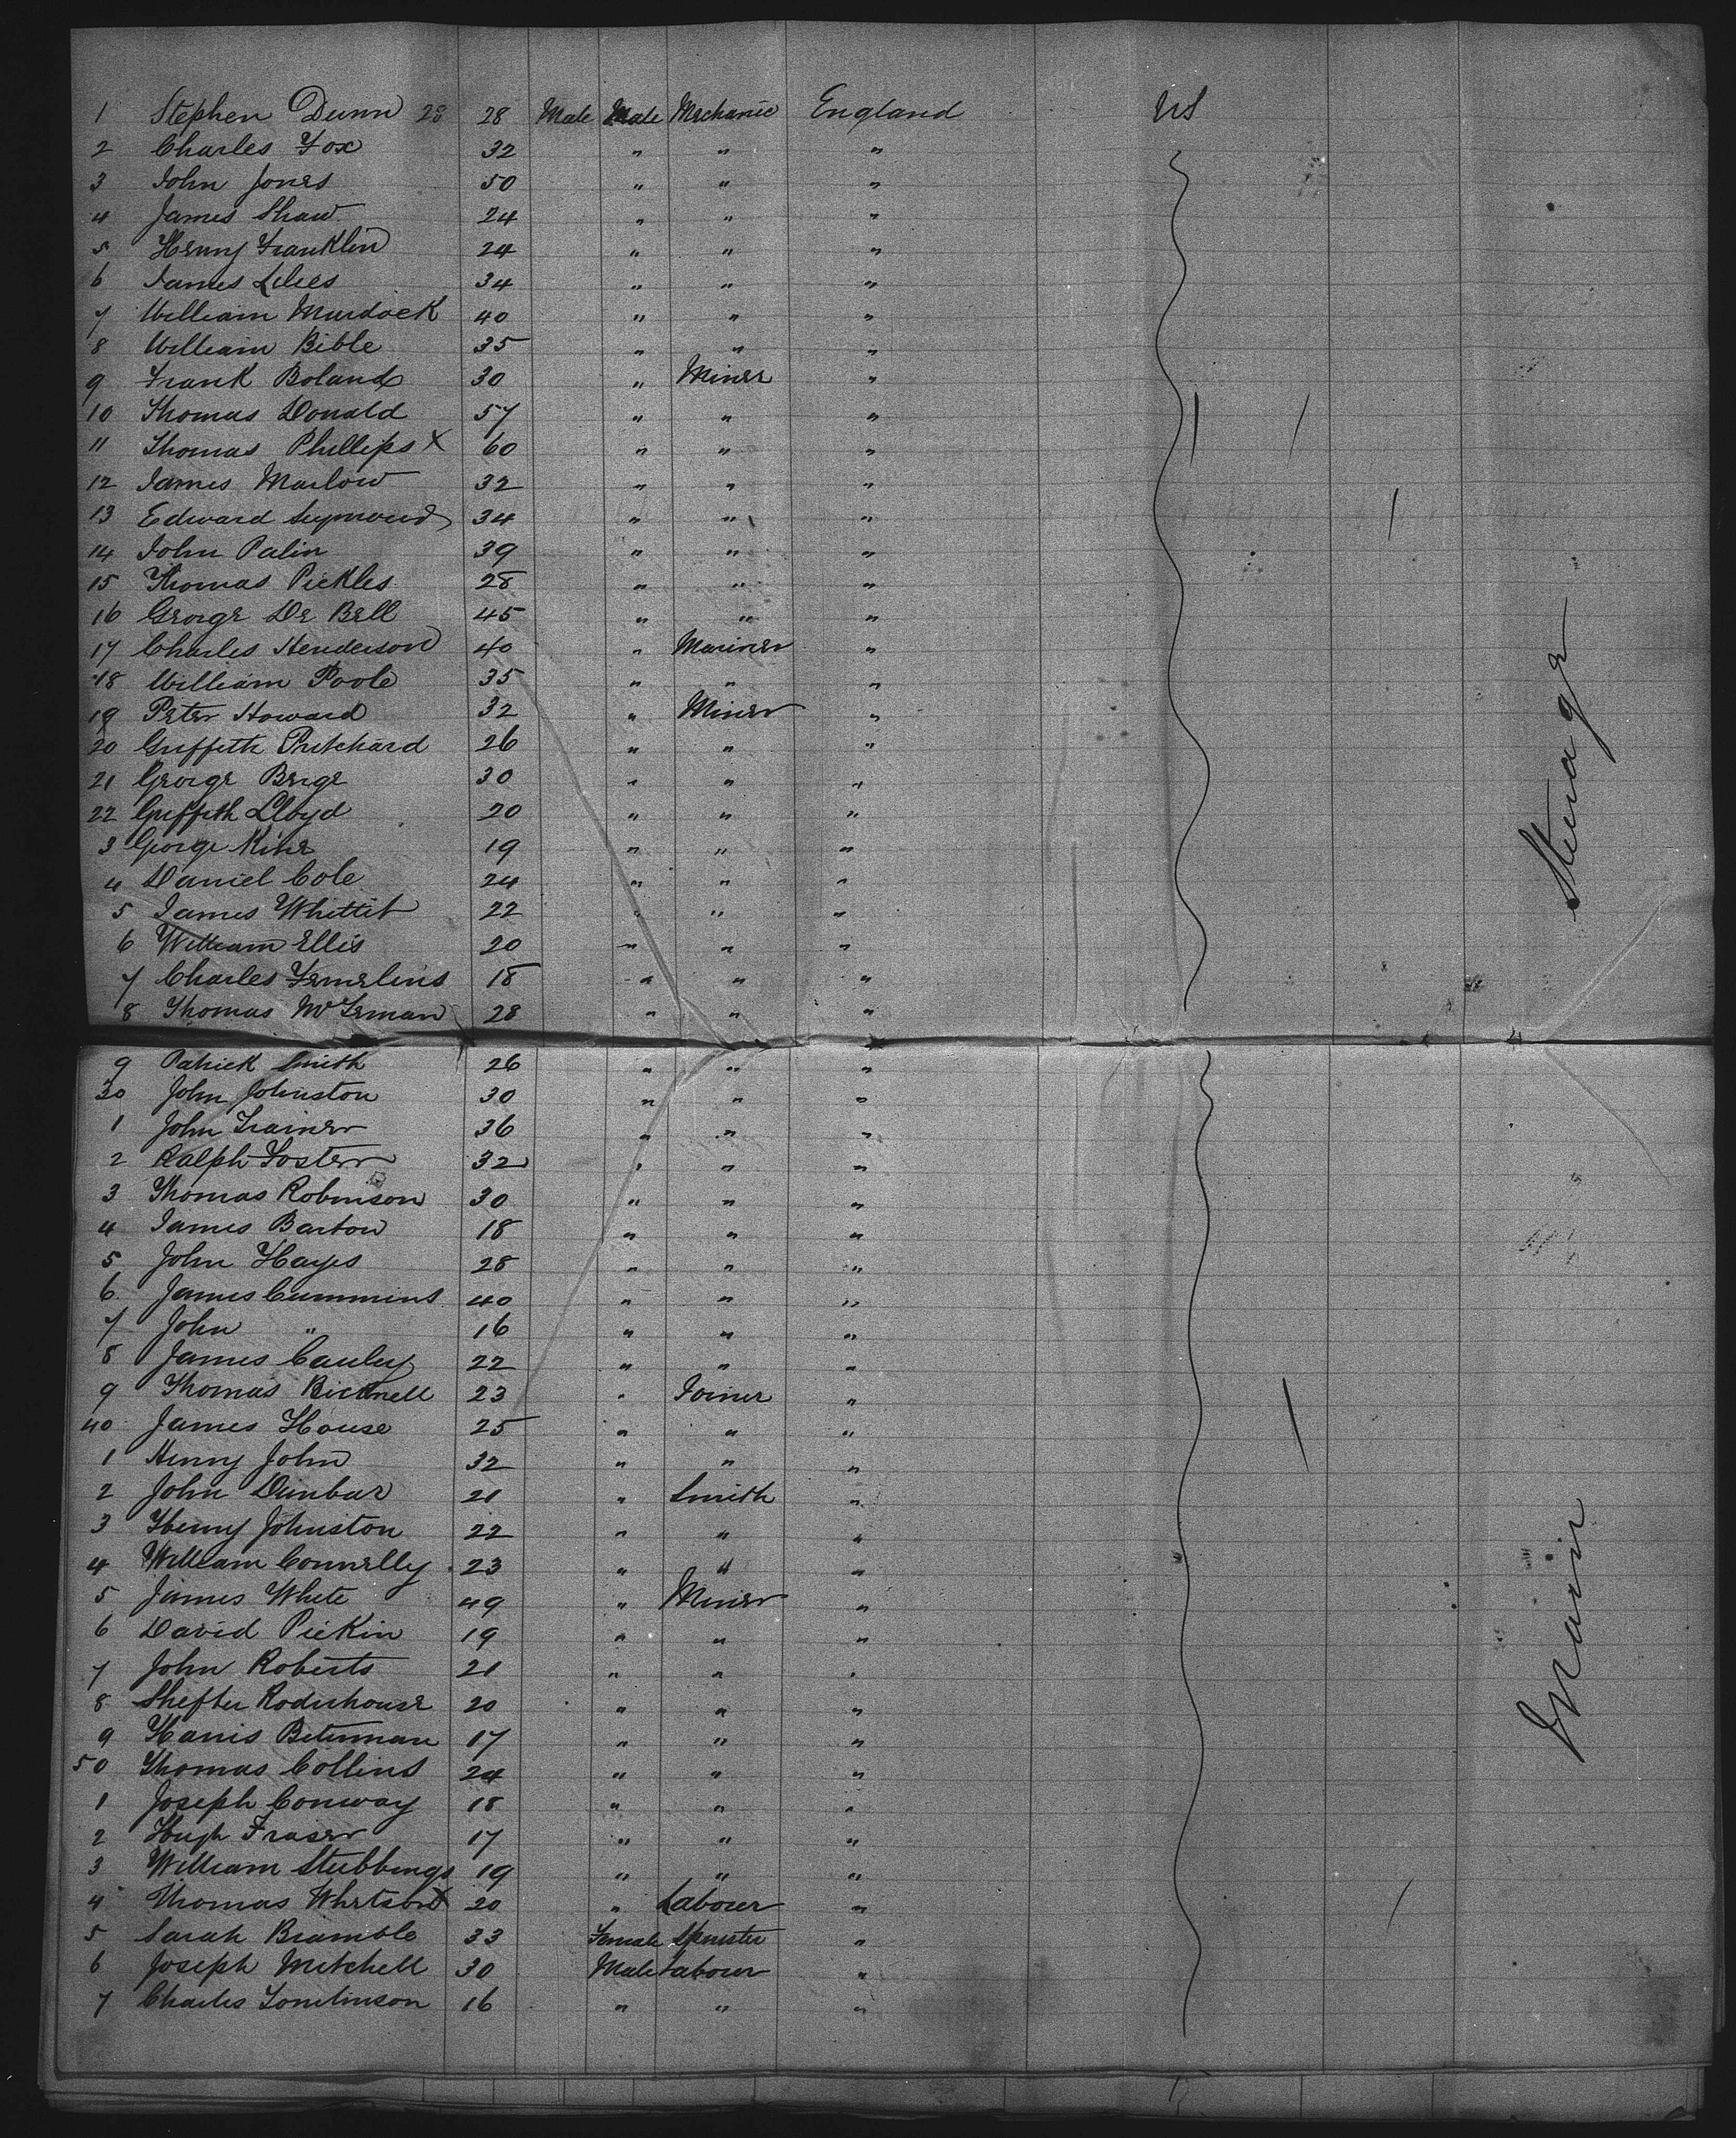 1 Stephen Dunn 28 28 Male Male Mechanic England US
2 Charles Fox 32 " " "
3 John Jones 50 " " "
4 James Shaw 24 " " "
5 Henry Franklin 24 " " "
6 James 34 " " "
7 William Murdock 40 " " "
8 William Bible 35 " " "
9 Frank Boland 30 " Miner "
10 Thomas Donald 57 " " "
11 Thomas Phillips X 60 " " "
12 James Marlow 32 " " "
13 Edward 34 " " "
14 John Palin 39 " " "
15 Thomas Pickles 28 " " "
16 George De Bell 45 " " "
17 Charles Henderson 40 " Mariner "
18 William Poole 35 " " "
19 Peter Howard 32 " Miner "
20 Griffith Pritchard 26 " " "
21 George Berge 30 " " "
22 Griffith Lloyd 20 " " "
3 George 19 " " "
4 Daniel Cole 24 " " "
5 James Whittit 22 " " "
6 William Ellis 20 " " "
7 Charles 18 " " "
8 Thomas 28 " " "
9 Patrick Smith 26 " " "
30 John Johnston 30 " " "
1 John Trainer 36 " " "
2 Ralph Foster 32 " " "
3 Thomas Robinson 30 " " "
4 James Barton 18 " " "
5 John Hayes 28 " " "
6 James Cummins 40 " " "
7 John " 16 " " "
8 James Cauley 22 " " "
9 Thomas Bicknell 23 " Joiner "
40 James House 25 " " "
1 Henry John 32 " " "
2 John Dunbar 21 " Smith "
3 Henry Johnston 22 " " "
4 William Connelly 23 " " "
5 James White 49 " Miner "
6 David Pickin 19 " " "
7 John Roberts 21 " " "
8 Roderhouse 20 " " "
9 Beterman 17 " " "
50 Thomas Collins 24 " " "
1 Joseph Conway 18 " " "
2 Hugh Fraser 17 " " "
3 William Stubbings 19 " " "
4 Thomas X 20 " Labourer "
5 Sarah Bramble 33 Female Spinster "
6 Joseph Mitchell 30 Male Labourer "
7 Charles Tomlinson 16 " " "
Steerage
Main